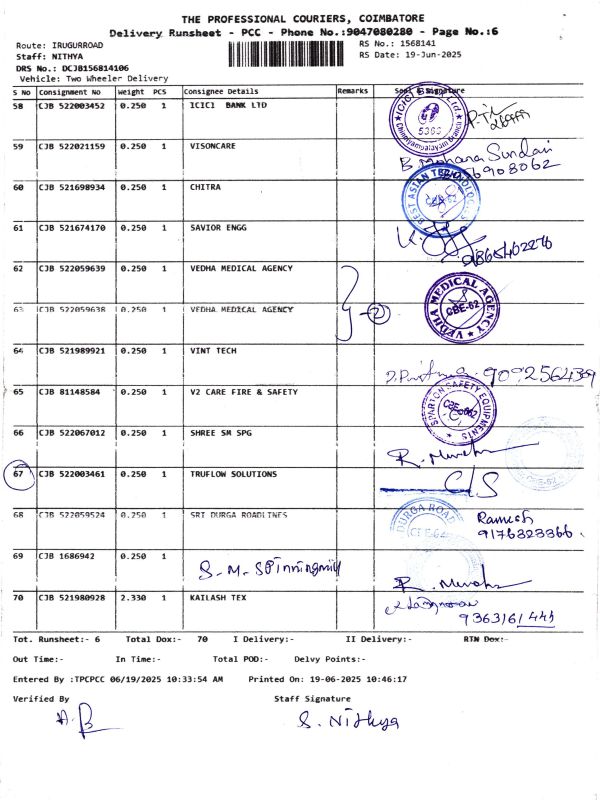 THE PROFESSIONAL COURIERS, COIMBATORE
Delivery Runsheet - PCC - Phone No.:9047080280 - Page No.:6
Route: IRUGURROAD RS No.: 1568141
Staff: NITHYA RS Date: 19-Jun-2025
DRS No.: DCJB156814106
Vehicle: Two Wheeler Delivery
S No Consignment No Weight PCS Consignee Details Remarks Seal & Signature
58 CJB 522003452 0.250 1 ICICI BANK LTD
ICICI Bank Ltd 5386
59 CJB 522021159 0.250 1 VISONCARE B. Mohana Sundari
60 CJB 521698934 0.250 1 CHITRA
61 CJB 521674170 0.250 1 SAVIOR ENGG
62 CJB 522059639 0.250 1 VEDHA MEDICAL AGENCY
VEDHA MEDICAL AGENCY CBE-62
63 CJB 522059638 0.250 1 VEDHA MEDICAL AGENCY 2
64 CJB 521989921 0.250 1 VINT TECH
65 CJB 81148584 0.250 1 V2 CARE FIRE & SAFETY
SPARTON SAFETY EQUIPMENTS
66 CJB 522067012 0.250 1 SHREE SM SPG
67 CJB 522003461 0.250 1 TRUFLOW SOLUTIONS C/S
68 CJB 522059524 0.250 1 SRI DURGA ROADLINES
DURGA ROAD Ramesh
9176323366
69 CJB 1686942 0.250 1 S.M. SPinningmill
70 CJB 521980928 2.330 1 KAILASH TEX
9363161444
Tot. Runsheet:- 6 Total Dox:- 70 I Delivery:- II Delivery:- RTN Dox:-
Out Time:- In Time:- Total POD:- Delvy Points:-
Entered By :TPCPCC 06/19/2025 10:33:54 AM Printed On: 19-06-2025 10:46:17
Verified By Staff Signature
S. Nithya